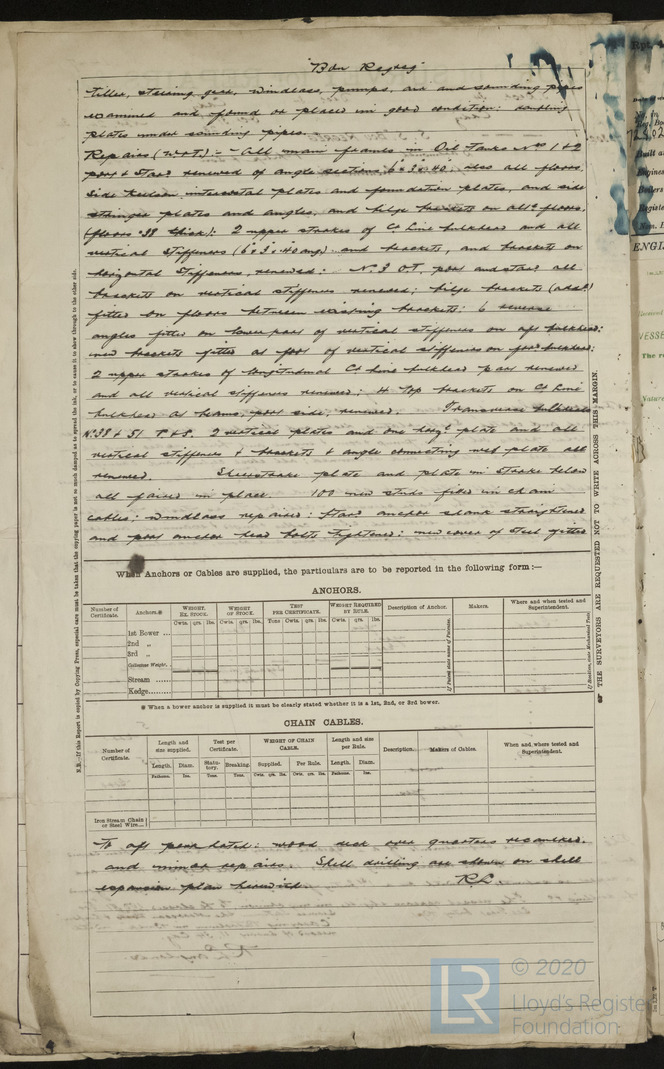 "Bou Regreg"
tiller, steering gear, windlass, pumps, air and sounding pipes
examined and found or placed in good condition: doubling
plates under sounding pipes.
Repairs (W&T):- All main frames in Oil Tanks Nos 1 & 2
port & starb renewed of angle sections 6 x 3 x .40 also all floors,
side keelson intercostal plates and foundation plates, and side
stringer plates and angles, and bilge brackets on alte floors,
(floors .38 thick): 2 upper strakes of Ce Line bulkhead and all
vertical stiffeners (6 x 3 x .40 ang) and brackets, and brackets on
horizontal stiffeners, renewed: No. 3 O.T. port and starb all
brackets on vertical stiffeners renewed; bilge brackets
fitted on floors between existing brackets: 6 reverse
angles fitted on lower part of vertical stiffeners on aft bulkhead:
new brackets fitted at foot of vertical stiffeners on ford bulkhead:
2 upper strakes of longitudinal Ce Line bulkhead part renewed
and all vertical stiffeners renewed; 4 top brackets on Ce Line
bulkhead at beams, port side, renewed. Transverse bulkheads
No 38 & 51 P. & S. 2 vertical plates and one horizl plate and all
vertical stiffeners & brackets & angle connecting web plate all
renewed. Sheerstrake plate and plate in strake below
all faired in place. 100 new studs fitted in chain
cables: windlass repaired: starb anchor shank straightened
and port anchor head bolts tightened: new cover of steel fitted
When Anchors or Cables are supplied, the particulars are to be reported in the following form:—
ANCHORS.
Number of Certificate.
Anchors.*
WEIGHT. Ex. STOCK.
WEIGHT OF STOCK.
TEST PER CERTIFICATE.
WEIGHT REQUIRED BY RULE.
Description of Anchor.
Makers.
Where and when tested and Superintendent.
Cwts. qrs. lbs. Cwts. qrs. lbs. Tons Cwts. qrs. lbs. Cwts. qrs. lbs.
1st Bower ...
2nd „
3rd „
Collective Weight.
Stream ......
Kedge.........
If Patent state name of Patentee.
* When a bower anchor is supplied it must be clearly stated whether it is a 1st, 2nd, or 3rd bower.
CHAIN CABLES.
Number of Certificate.
Length and size supplied.
Test per Certificate.
WEIGHT OF CHAIN CABLE.
Length and size per Rule.
Description.
Makers of Cables.
When and where tested and Superintendent.
Length. Diam. Statutory. Breaking. Supplied. Per Rule. Length. Diam.
Fathoms. Ins. Tons. Tons. Cwts. qrs. lbs. Cwts. qrs. lbs. Fathoms. Ins.
Iron Stream Chain or Steel Wire...
To aft peak hatch: wood deck over quarters recaulked,
and minor repairs. Shell drilling are shown on shell
expansion plan herewith. R.L.
N.B.—If this Report is copied by Copying Press, especial care must be taken that the copying paper is not so much damped as to spread the ink, or to cause it to show through to the other side.
THE SURVEYORS ARE REQUESTED NOT TO WRITE ACROSS THIS MARGIN.
LR
© 2020
Lloyd's Register
Foundation